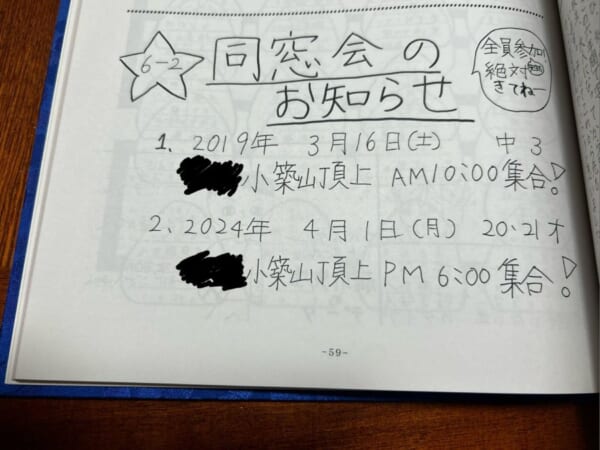 6-2
同窓会の
お知らせ
全員参加!
絶対
きてねー
1、2019年 3月16日(土) 中3
小築山頂上 AM10:00集合!
2、2024年 4月1日(月) 20・21才
小築山頂上 PM 6:00集合!
-59-